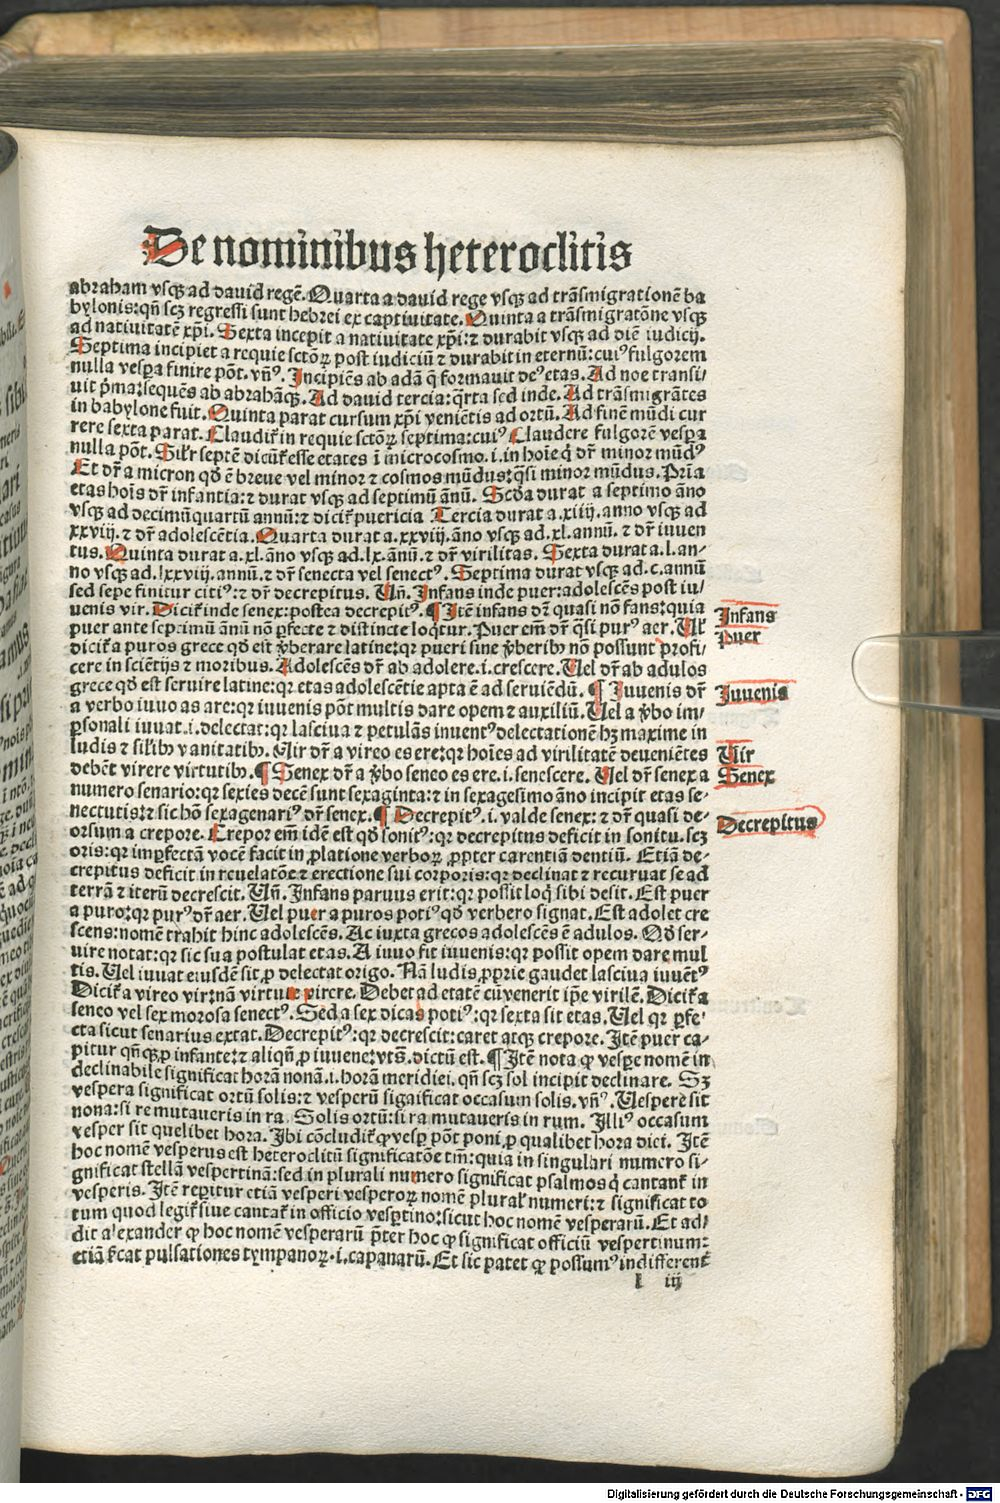 De nominibus heteroclitis
abraham vsqꝫ ad dauid regẽ. Quarta a dauid rege vsqꝫ ad trãsmigrationẽ ba
bylonis: qñ scꝫ regressi sunt hebrei ex captiuitate. Quinta a trãsmigratõne vsqꝫ
ad natiuitatẽ xp̃i. Sexta incepit a natiuitate xp̃i: ⁊ durabit vsqꝫ ad diẽ iudicij.
Septima incipiet a requie sctõꝝ post iudiciũ ⁊ durabit in eternũ: cuiꝰ fulgorem
nulla vesp̱a finire põt. vñꝰ. Incipiẽs ab adã q̃ formauit deꝰ etas. Ad noe transi/
uit p̃ma: sequẽs ab abrahãqꝫ. Ad dauid tercia: q̃rta sed inde. Ad trãsmigrãtes
in babylone fuit. Quinta parat cursum xp̃i veniẽtis ad ortũ. Ad finẽ mũdi cur
rere sexta parat. Claudit̃ in requie sctõꝝ septima: cuiꝰ Claudere fulgorẽ vesp̱a
nulla põt. Silr̃ septẽ dicũt̃ esse etates ĩ microcosmo. i. in hoĩe q̃ dr̃ minor mũdꝰ
Et dr̃ a micron qđ ẽ breue vel minor ⁊ cosmos mũdus: q̃si minor mũdus. Prĩa
etas hoĩs dr̃ infantia: ⁊ durat vsqꝫ ad septimũ ãnũ. Scđa durat a septimo ãno
vsqꝫ ad decimũquartũ annũ: ⁊ dicit̃ puericia Tercia durat a. xiiij. anno vsqꝫ ad
xxviij. ⁊ dr̃ adolescẽtia. Quarta durat a. xxviij. ãno vsqꝫ ad. xl. annũ. ⁊ dr̃ iuuen
tus. Quinta durat a. xl. ãno vsqꝫ ad. lx. ãnũ. ⁊ dr̃ virilitas. Sexta durat a. l. an/
no vsqꝫ ad. lxxviij. annũ. ⁊ dr̃ senecta vel senectꝰ. Septima durat vsqꝫ ad. c. annũ
sed sepe finitur citiꝰ: ⁊ dr̃ decrepitus. Vñ. Infans inde puer: adolescẽs post iu/
uenis vir. Dicit̃ inde senex: postea decrepitꝰ. ¶ Itẽ infans dr̃ quasi nõ fans: quia
puer ante septimũ ãnũ nõ p̱fecte ⁊ distincte loq̃tur. Puer em̃ dr̃ q̃si purꝰ aer. Vl̃
dicit̃ a puros grece qđ est v̾berare latine: qꝛ pueri sine v̾beribꝰ nõ possunt profi/
cere in sciẽtijs ⁊ moribus. Adolescẽs dr̃ ab adolere. i. crescere. Vel dr̃ ab adulos
grece qđ est seruire latine: qꝛ etas adolescẽtie apta ẽ ad seruiẽdũ. ¶ Iuuenis dr̃
a verbo iuuo as are: qꝛ iuuenis põt multis dare opem ⁊ auxiliũ. Vel a v̾bo im/
p̱sonali iuuat. i. delectat: qꝛ lasciua ⁊ petulãs iuuentꝰ delectationẽ hꝫ maxime in
ludis ⁊ silibꝫ vanitatibꝫ. Vir dr̃ a vireo es ere: qꝛ hoĩes ad virilitatẽ deueniẽtes
debẽt virere virtutibꝫ. ¶ Senex dr̃ a v̾bo seneo es ere. i. senescere. Vel dr̃ senex a
numero senario: qꝛ sexies decẽ sunt sexaginta: ⁊ in sexagesimo ãno incipit etas se/
nectutis: ⁊ sic hõ sexagenariꝰ dr̃ senex. ¶ Decrepitꝰ. i. valde senex: ⁊ dr̃ quasi de/
orsum a crepore. Crepor em̃ idẽ est qđ sonitꝰ: qꝛ decrepitus deficit in sonitu. scꝫ
oris: qꝛ imp̱fectã vocẽ facit in ꝓlatione verboꝝ ꝓpter carentiã dentiũ. Etiã de/
crepitus deficit in reuelatõe ⁊ erectione sui corporis: qꝛ declinat ⁊ recuruat se ad
terrã ⁊ iterũ decrescit. Vñ. Infans paruus erit: qꝛ possit loq̃ sibi desit. Est puer
a puro: qꝛ purꝰ dr̃ aer. Vel puer a puros potiꝰ qđ verbero signat. Est adolet cre
scens: nomẽ trahit hinc adolescẽs. Ac iuxta grecos adolescẽs ẽ adulos. Qđ ser/
uire notat: qꝛ sic sua postulat etas. A iuuo fit iuuenis: qꝛ possit opem dare mul
tis. Vel iuuat eiusdẽ sit ꝓ delectat origo. Nã ludis ꝓprie gaudet lasciua iuuẽtꝰ
Dicit̃ a vireo vir: nã virtute virere. Debet ad etatẽ cũ venerit ip̃e virilẽ. Dicit̃ a
seneo vel sex morosa senectꝰ. Sed a sex dicas potiꝰ: qꝛ sexta sit etas. Vel qꝛ p̱fe/
cta sicut senarius extat. Decrepitꝰ: qꝛ decrescit: caret atqꝫ crepore. Itẽ puer ca/
pitur qñqꝫ ꝓ infante: ⁊ aliqñ ꝓ iuuene: vts̃. dictũ est. ¶ Itẽ nota ꝙ vesp̱e nomẽ in
declinabile significat horã nonã. i. horã meridiei. qñ scꝫ sol incipit declinare. Sꝫ
vespera significat ortũ solis: ⁊ vesperũ significat occasum solis. vñꝰ. Vespere sit
nona: si re mutaueris in ra. Solis ortũ: si ra mutaueris in rum. Illiꝰ occasum
vesper sit quelibet hora. Ibi cõcludit̃ ꝙ vesp̱ põt poni ꝓ qualibet hora diei. Itẽ
hoc nomẽ vesperus est heteroclitũ significatõe tm̃: quia in singulari numero si/
gnificat stellã vespertinã: sed in plurali numero significat psalmos q̃ cantant̃ in
vesperis. Itẽ reperitur etiã vesperi vesperoꝝ nomẽ pluralꝭ numeri: ⁊ significat to
tum quod legit̃ siue cantat̃ in officio vesp̱tino: sicut hoc nomẽ vesperarũ. Et ad/
dit alexander ꝙ hoc nomẽ vesperarũ p̃ter hoc ꝙ significat officiũ vespertinum:
etiã s̃cat pulsationes tympanoꝝ. i. cãpanarũ. Et sic patet ꝙ possumꝰ indifferent̃
l iij
Infans
Puer
Iuuenis
Vir
Senex
Decrepitus
Digitalisierung gefördert durch die Deutsche Forschungsgemeinschaft - DFG